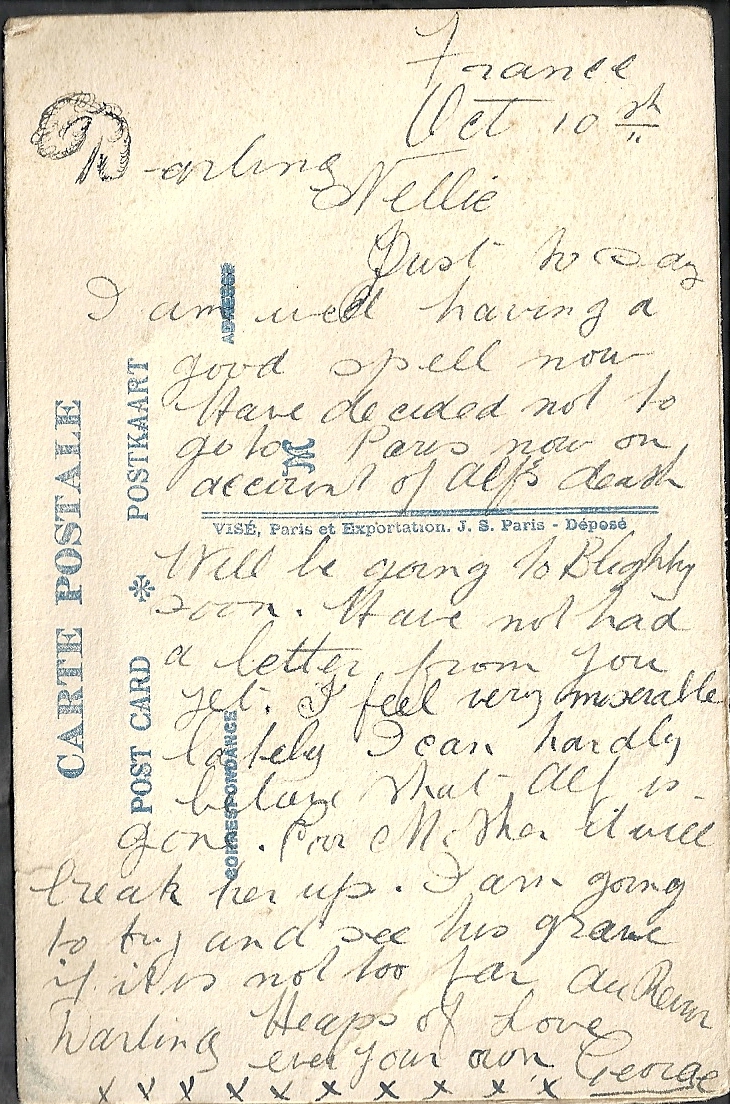 France
Oct 10th
Darling
Nellie
Just to say
I am well having a
good spell now
Have decided not to
go to Paris now on
account of Alf's death
Will be going to Blighty
soon. Have not had
a letter from you
yet. I feel very miserable
lately I can hardly
believe that Alf is
gone. Poor Mother it will
break her up. I am going
to try and see his grave
if it is not too far Au Revoir
Darling Heaps of Love
ever your own George
x x x x x x x x x x x
CARTE POSTALE
POST CARD * POSTKAART
CORRESPONDANCE
ADRESSE
M
VISÉ, Paris et Exportation. J. S. Paris - Déposé